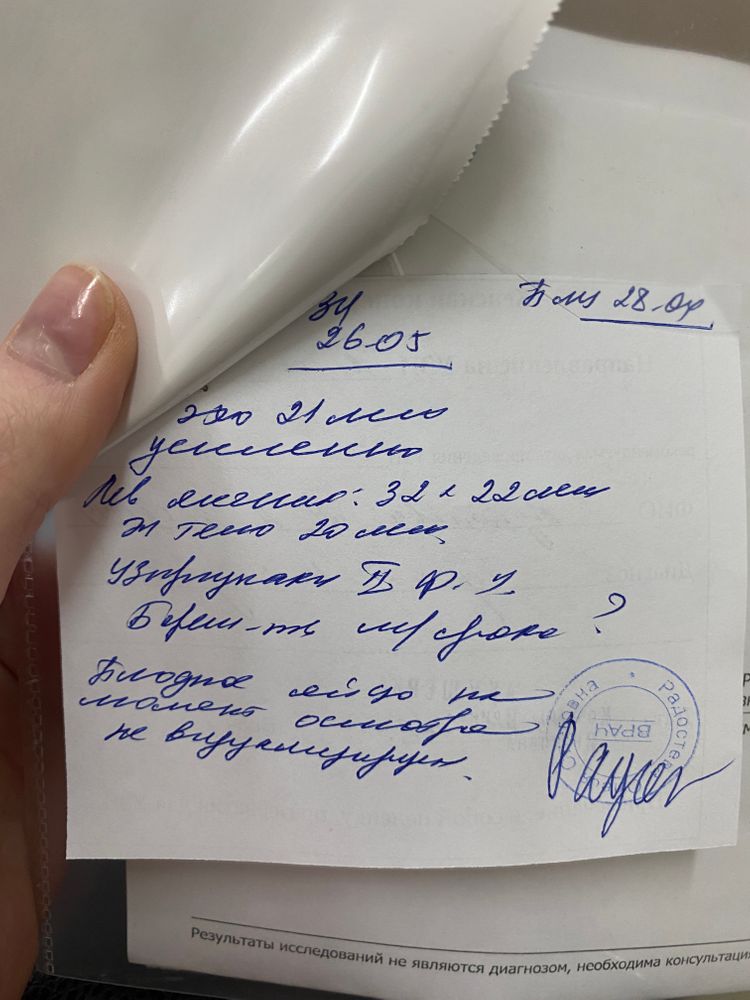 ЗУ
26-05
эхо 21 мм
усиленно
Лев яичник: 32 х 22 мм
Ж тело 20 мм
УЗпризнаки II ф. ц.
Берем-ть м/срока ?
Плодное яйцо на
момент осмотра
не визуализируем
ВРАЧ
Результаты исследований не являются диагнозом, необходима консультация